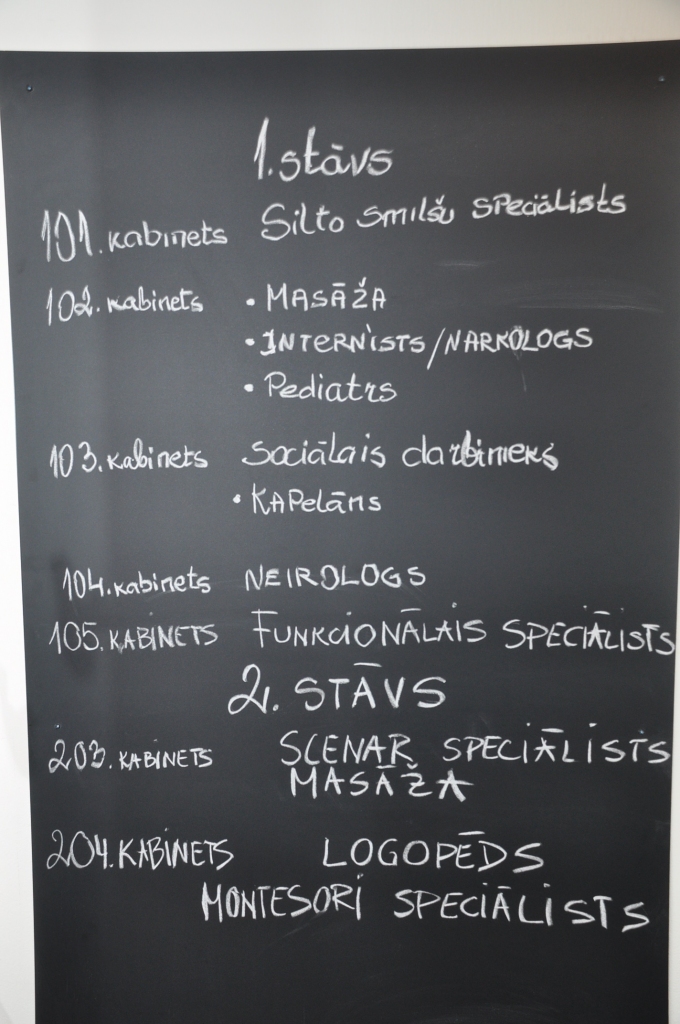 1. stāvs
101. kabinets Silto smilšu speciālists
102. kabinets • MASĀŽA
• INTERNISTS/NARKOLOGS
• Pediatrs
103. kabinets Sociālais darbinieks
• KAPelāns
104. kabinets NEIROLOGS
105. KABINETS FUNKCIONĀLAIS SPECIĀLISTS
2. STĀVS
203. KABINETS SCENAR SPECIĀLISTS
MASĀŽA
204. KABINETS LOGOPĒDS
MONTESORI SPECIĀLISTS